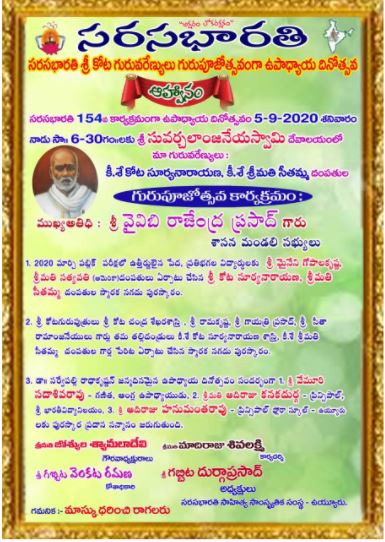 "అక్షరం లోకరక్షకం"
సరసభారతి
సరసభారతి శ్రీ కోట గురువరేణ్యులు గురుపూజోత్సవంగా ఉపాధ్యాయ దినోత్సవ
ఆహ్వానం
సరసభారతి 154వ కార్యక్రమంగా ఉపాధ్యాయ దినోత్సవం 5-9-2020 శనివారం
నాడు సా॥ 6-30గం॥లకు శ్రీ సువర్చలాంజనేయస్వామి దేవాలయంలో
మా గురువరేణ్యులు :
కీ.శే కోట సూర్యనారాయణ, కీ.శే శ్రీమతి సీతమ్మ దంపతుల
గురుపూజోత్సవ కార్యక్రమం :
ముఖ్యఅతిథి : శ్రీ వైవిబి రాజేంద్ర ప్రసాద్ గారు
శాసన మండలి సభ్యులు
1. 2020 మార్చి పబ్లిక్ పరీక్షలో ఉత్తీర్ణులైన పేద, ప్రతిభగల విద్యార్థులకు శ్రీ మైనేని గోపాలకృష్ణ,
శ్రీమతి సత్యవతి (అమెరికా)దంపతులు ఏర్పాటు చేసిన శ్రీ కోట సూర్యనారాయణ, శ్రీమతి
సీతమ్మ దంపతుల స్మారక నగదు పురస్కారం.
2. శ్రీ కోటగురుపుత్రులు శ్రీ కోట చంద్ర శేఖరశాస్త్రి , శ్రీ రామకృష్ణ, శ్రీ గాయత్రి ప్రసాద్, శ్రీ సీతా
రామాంజనేయులు గార్లు తమ తల్లిదండ్రులు కీ.శే కోట సూర్యనారాయణ శాస్త్రి, కీ.శే శ్రీమతి
సీతమ్మ దంపతుల గార్ల పేరిట ఏర్పాటు చేసిన స్మారక నగదు పురస్కారం.
3. డా॥ సర్వేపల్లి రాధాకృష్ణన్ జన్మదినమైన ఉపాధ్యాయ దినోత్సవం సందర్భంగా 1. శ్రీ వేమూరి
సదాశివరావు - గణిత, ఆంగ్ల ఉపాధ్యాయుడు. 2. శ్రీమతి ఆదిరాజు కనకదుర్గ - ప్రిన్సిపాల్,
శ్రీ భారతీవిద్యానిలయం, 3. శ్రీ ఆదిరాజు హనుమంతరావు - ప్రిన్సిపాల్ ఫ్లోరా స్కూల్ - ఉయ్యూరు
లకు పురస్కార ప్రదాన సన్మానం జరుగుతుంది.
శ్రీమతి జోశ్యుల శ్యామలాదేవి
గౌరవాధ్యక్షురాలు
శ్రీమతి మాదిరాజు శివలక్ష్మి
కార్యదర్శి
శ్రీ గబ్బిట వెంకట రమణ
కోశాధికారి
శ్రీ గబ్బిట దుర్గాప్రసాద్
అధ్యక్షులు
సరసభారతి సాహిత్య సాంస్కృతిక సంస్థ - ఉయ్యూరు.
గమనిక :- మాస్కు ధరించి రాగలరు